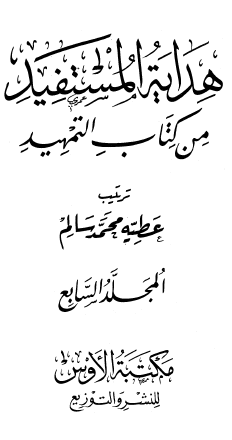 هِدَايَةُ الْمُسْتَفِيدِ
مِن كِتَابِ التَّمْهِيدِ
ترتيب
عَطِيَّه مُحَمَّد سَالِمْ
المجلَّد السَّابع
مَكتَبَة الأوْسْ
للنشر والتوزيع